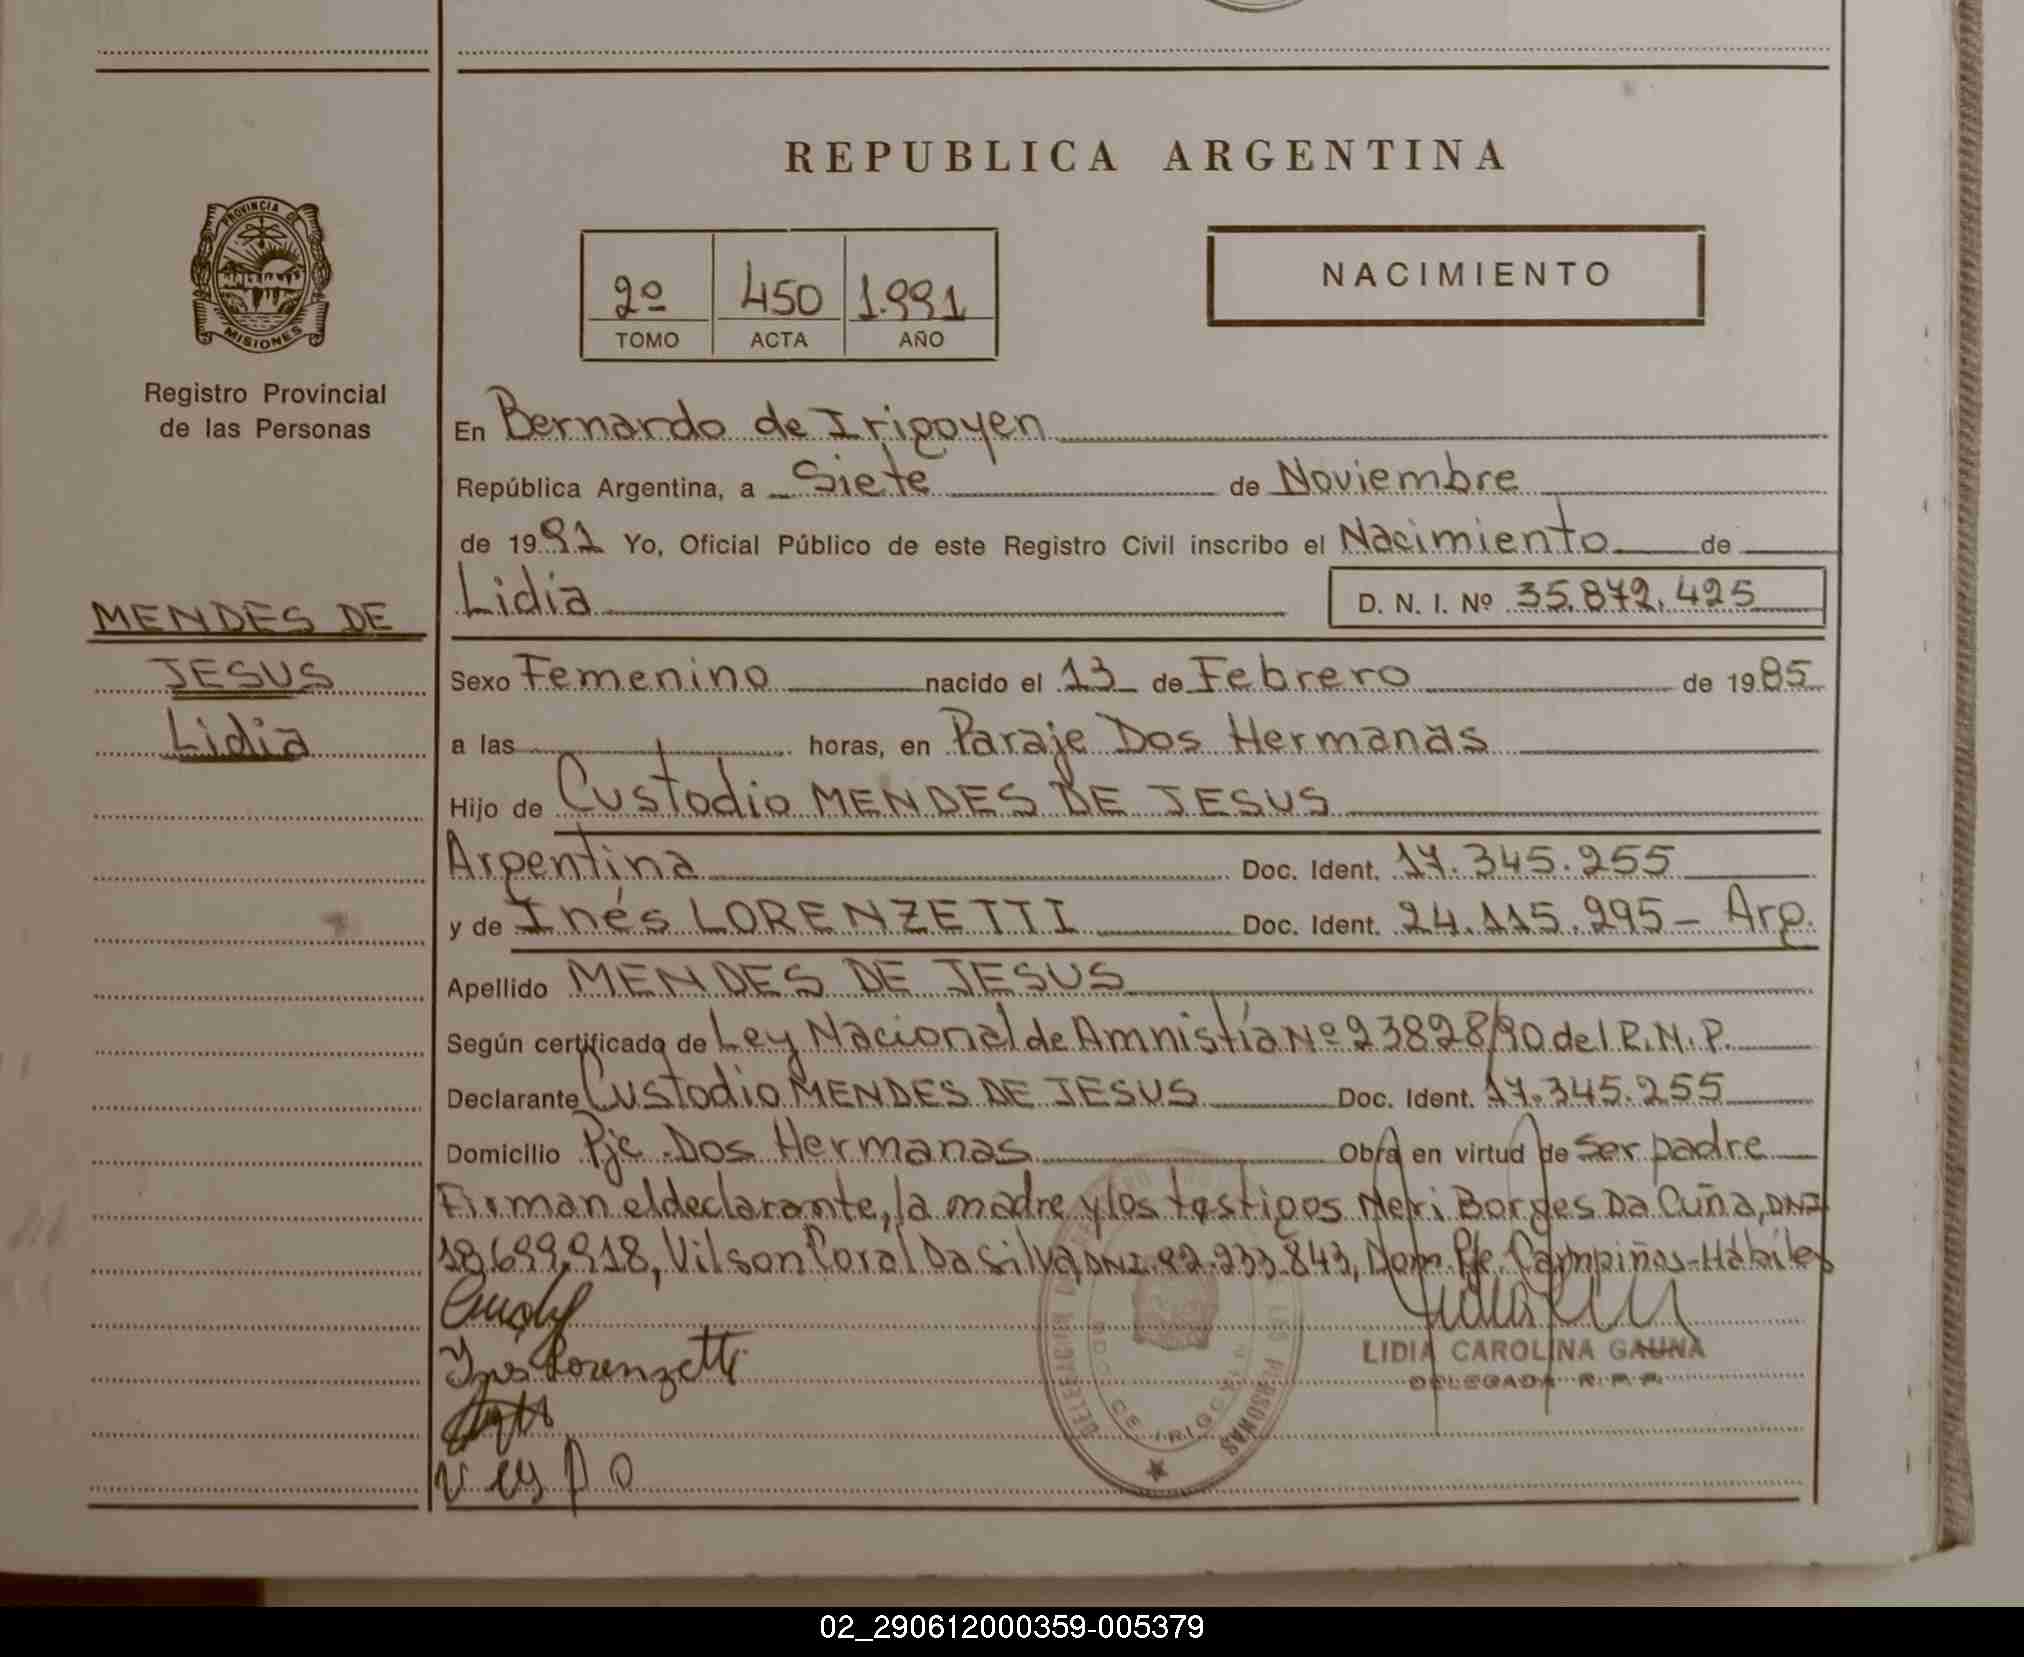 REPUBLICA ARGENTINA
PROVINCIA DE
MISIONES
Registro Provincial
de las Personas
2º 450 1.991
TOMO ACTA AÑO
NACIMIENTO
En Bernardo de Irigoyen
República Argentina, a Siete de Noviembre
de 1991 Yo, Oficial Público de este Registro Civil inscribo el Nacimiento de
Lidia D. N. I. Nº 35.872.425
MENDES DE
JESUS
Lidia
Sexo Femenino nacido el 13 de Febrero de 1985
a las horas, en Paraje Dos Hermanas
Hijo de Custodio MENDES DE JESUS
Argentina Doc. Ident. 17.345.255
y de Inés LORENZETTI Doc. Ident. 24.115.295 - Arg.
Apellido MENDES DE JESUS
Según certificado de Ley Nacional de Amnistía Nº 23828/90 del R.N.P.
Declarante Custodio MENDES DE JESUS Doc. Ident. 17.345.255
Domicilio Pje. Dos Hermanas Obra en virtud de ser padre
Firman el declarante, la madre y los testigos Neri Borges Da Cuña, DNI
18.699.918, Vilson Coral Da Silva, DNI. 92.233.843, Dom. Pje. Campiñas-Hábiles
Inés Lorenzetti
LIDIA CAROLINA GAUNA
DELEGADA R. P. P.
02_290612000359-005379